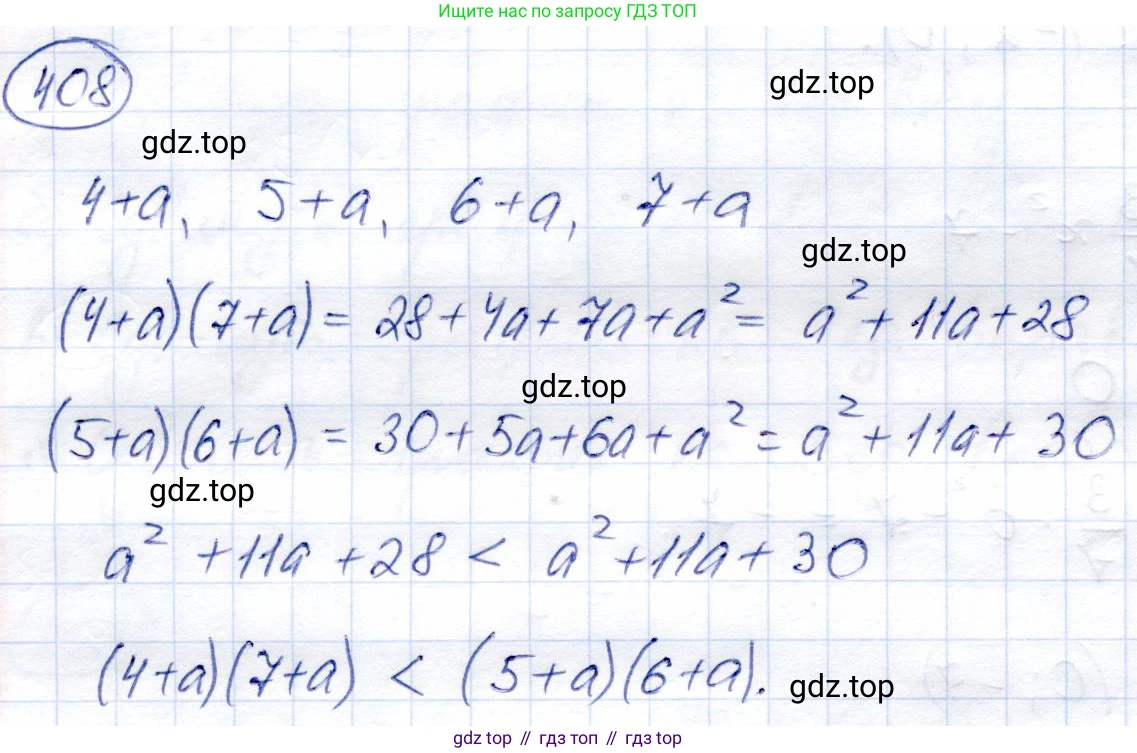 Ищите нас по запросу ГДЗ ТОП
408
gdz.top
gdz.top
4+a, 5+a, 6+a, 7+a
gdz.top
(4+a)(7+a)= 28+4a+7a+a²= a²+11a+28
gdz.top
(5+a)(6+a) = 30+5a+6a+a²= a²+11a+30
gdz.top
a²+11a+28 < a²+11a+30
(4+a)(7+a) < (5+a)(6+a).
gdz.top
gdz top // гдз топ // гдз top